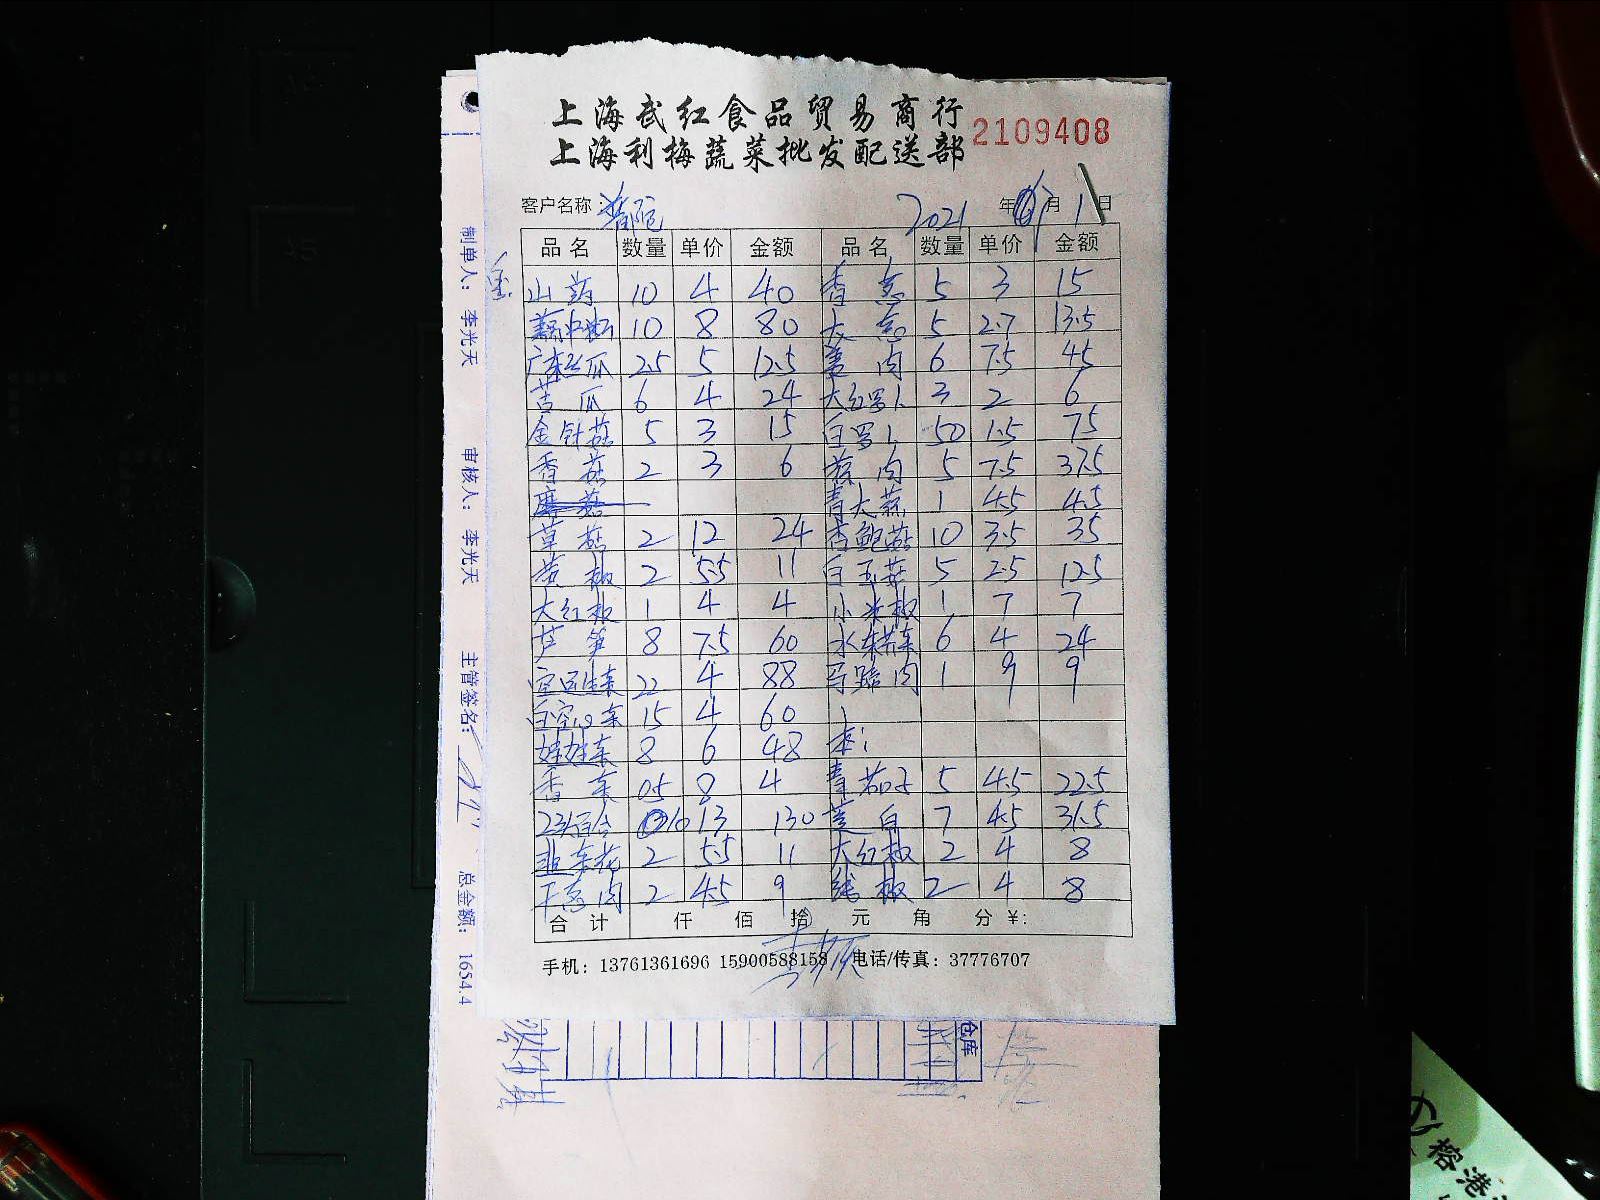 上海武红食品贸易商行
上海利梅蔬菜批发配送部
2109408
客户名称： 2021 年 月 1 日
品名 数量 单价 金额 品名 数量 单价 金额
山药 10 4 40 香葱 5 3 15
藕中段 10 8 80 大葱 5 2.7 13.5
广东丝瓜 2.5 5 12.5 姜肉 6 7.5 45
苦瓜 6 4 24 大红罗卜 3 2 6
金针菇 5 3 15 白罗卜 50 1.5 75
香菇 2 3 6 蒜肉 5 7.5 37.5
蘑菇 青大蒜 1 4.5 4.5
草菇 2 12 24 杏鲍菇 10 3.5 35
黄椒 2 5.5 11 白玉菇 5 2.5 12.5
大红椒 1 4 4 小米椒 1 7 7
芦笋 8 7.5 60 水东芥菜 6 4 24
生菜 22 4 88 马蹄肉 1 9 9
白空心菜 15 4 60
娃娃菜 8 6 48 本：
香菜 0.5 8 4 青茄子 5 4.5 22.5
百合 10 13 130 茭白 7 4.5 31.5
韭菜花 2 5.5 11 大红椒 2 4 8
干葱肉 2 4.5 9 线椒 2 4 8
合计 仟 佰 拾 元 角 分 ¥:
手机：13761361696 15900588158 电话/传真：37776707
制单人：李光天
审核人：李光天
主管签名：
总金额：1654.4
仓库
榕港